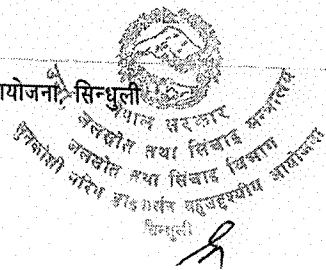 योजना, सिन्धुली
नेपाल सरकार
जलस्रोत तथा सिंचाइ मन्त्रालय
जलस्रोत तथा सिंचाइ विभाग
सुनकोशी मरिण डाइभर्सन बहुउद्देश्यीय आयोजना
सिन्धुली